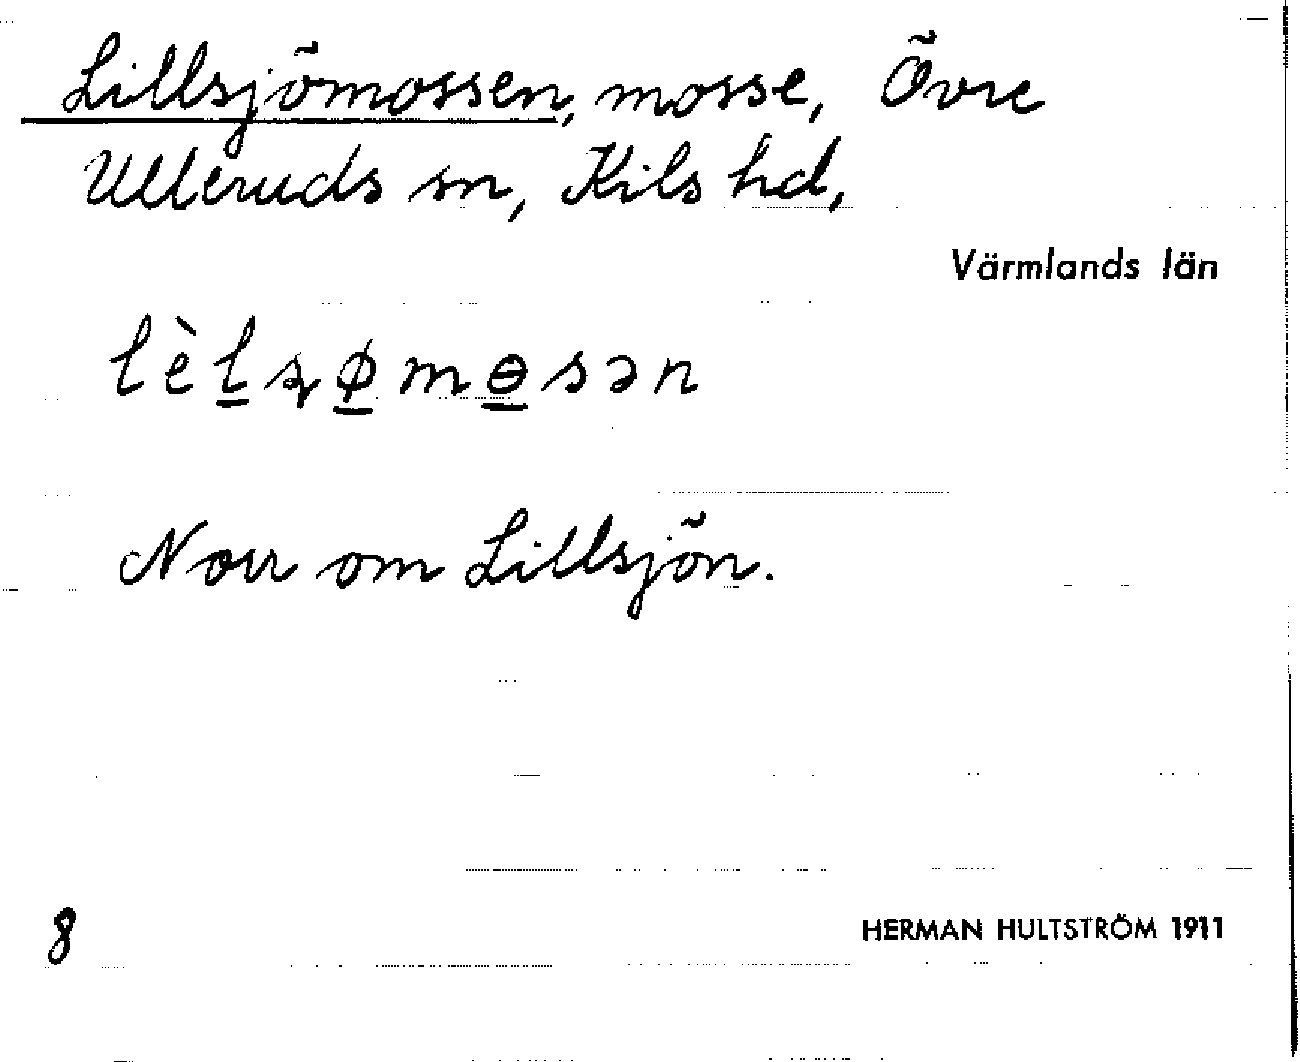 Lillsjömossen, mosse, Övre
Ulleruds sn, Kils hd,
Värmlands län
lèl̲ʂø̲mɵ̲sən
Norr om Lillsjön.
8
HERMAN HULTSTRÖM 1911